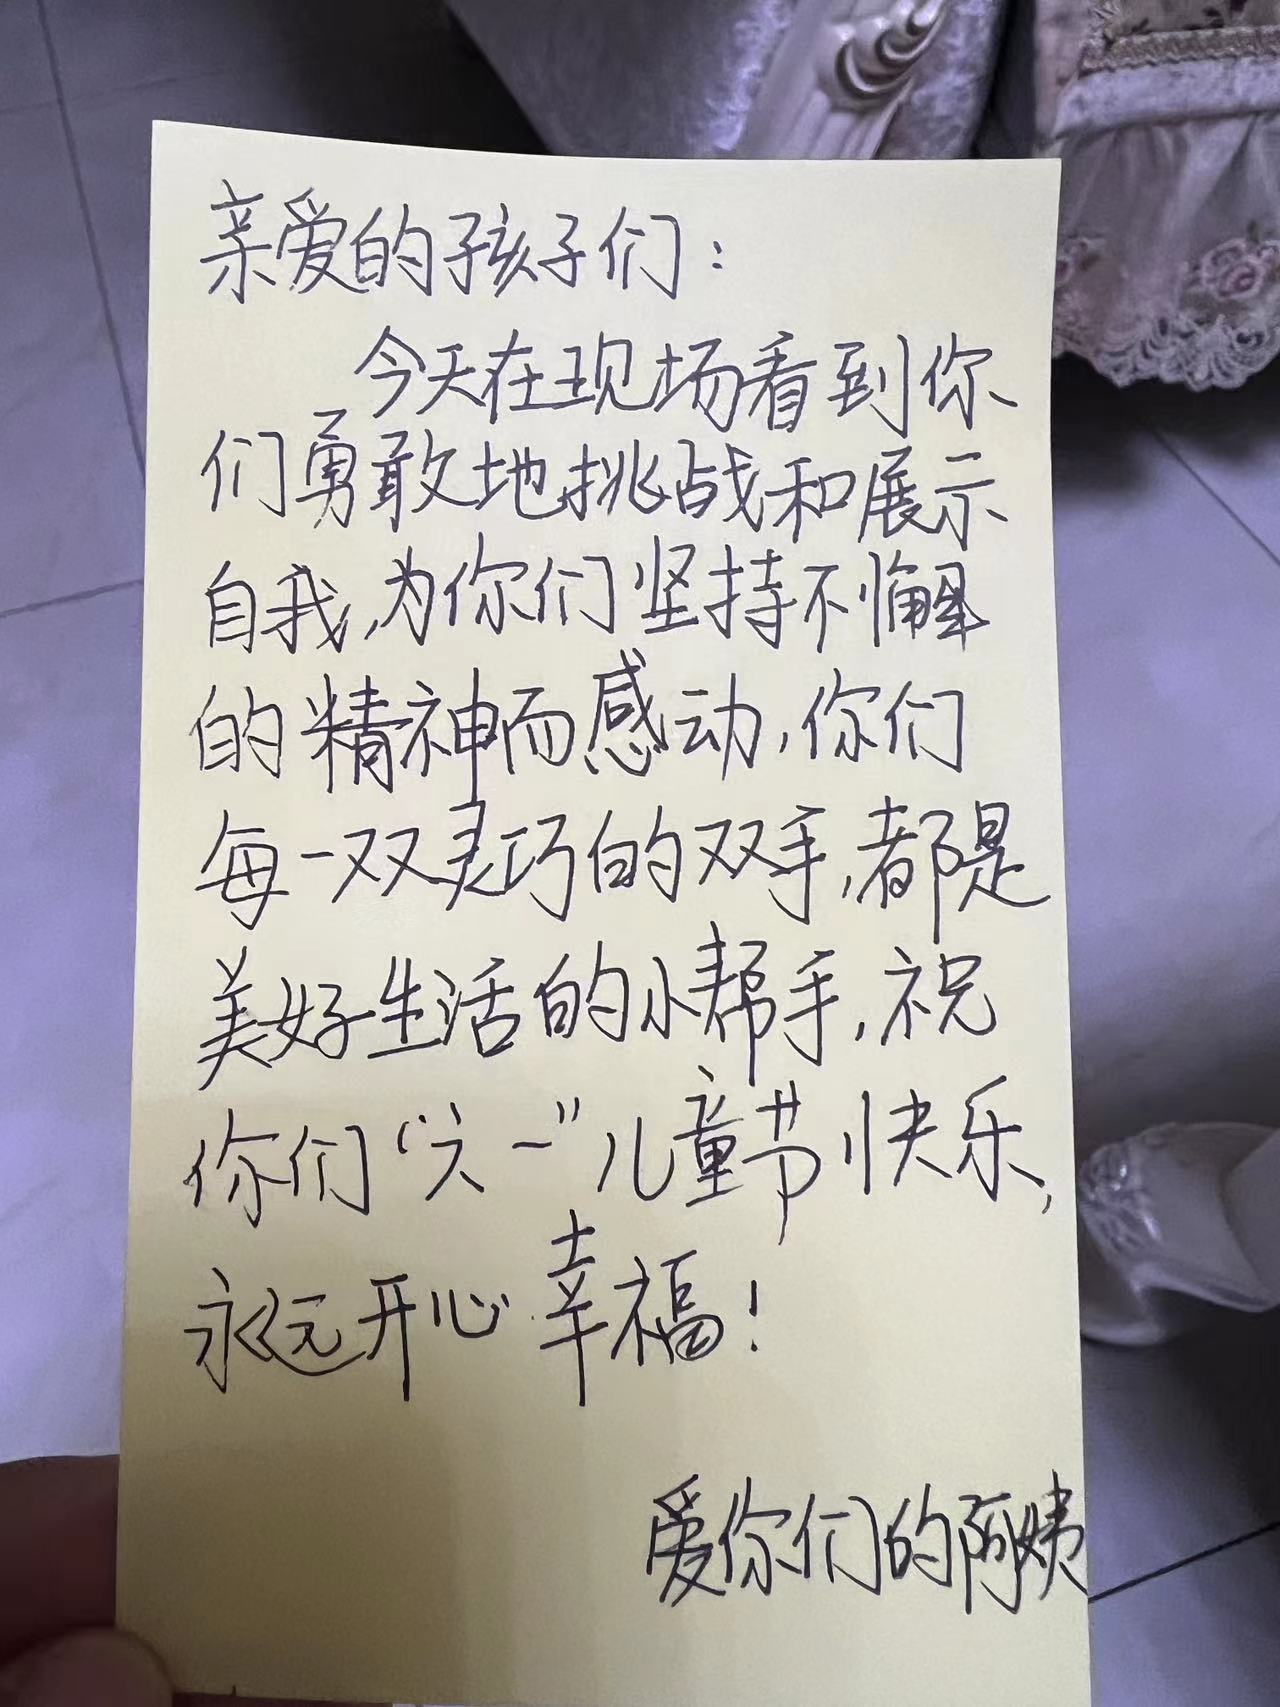 亲爱的孩子们：
今天在现场看到你
们勇敢地挑战和展示
自我,为你们坚持不懈
的精神而感动,你们
每一双灵巧的双手,都是
美好生活的小帮手,祝
你们“六一”儿童节快乐,
永远开心幸福!
爱你们的阿姨